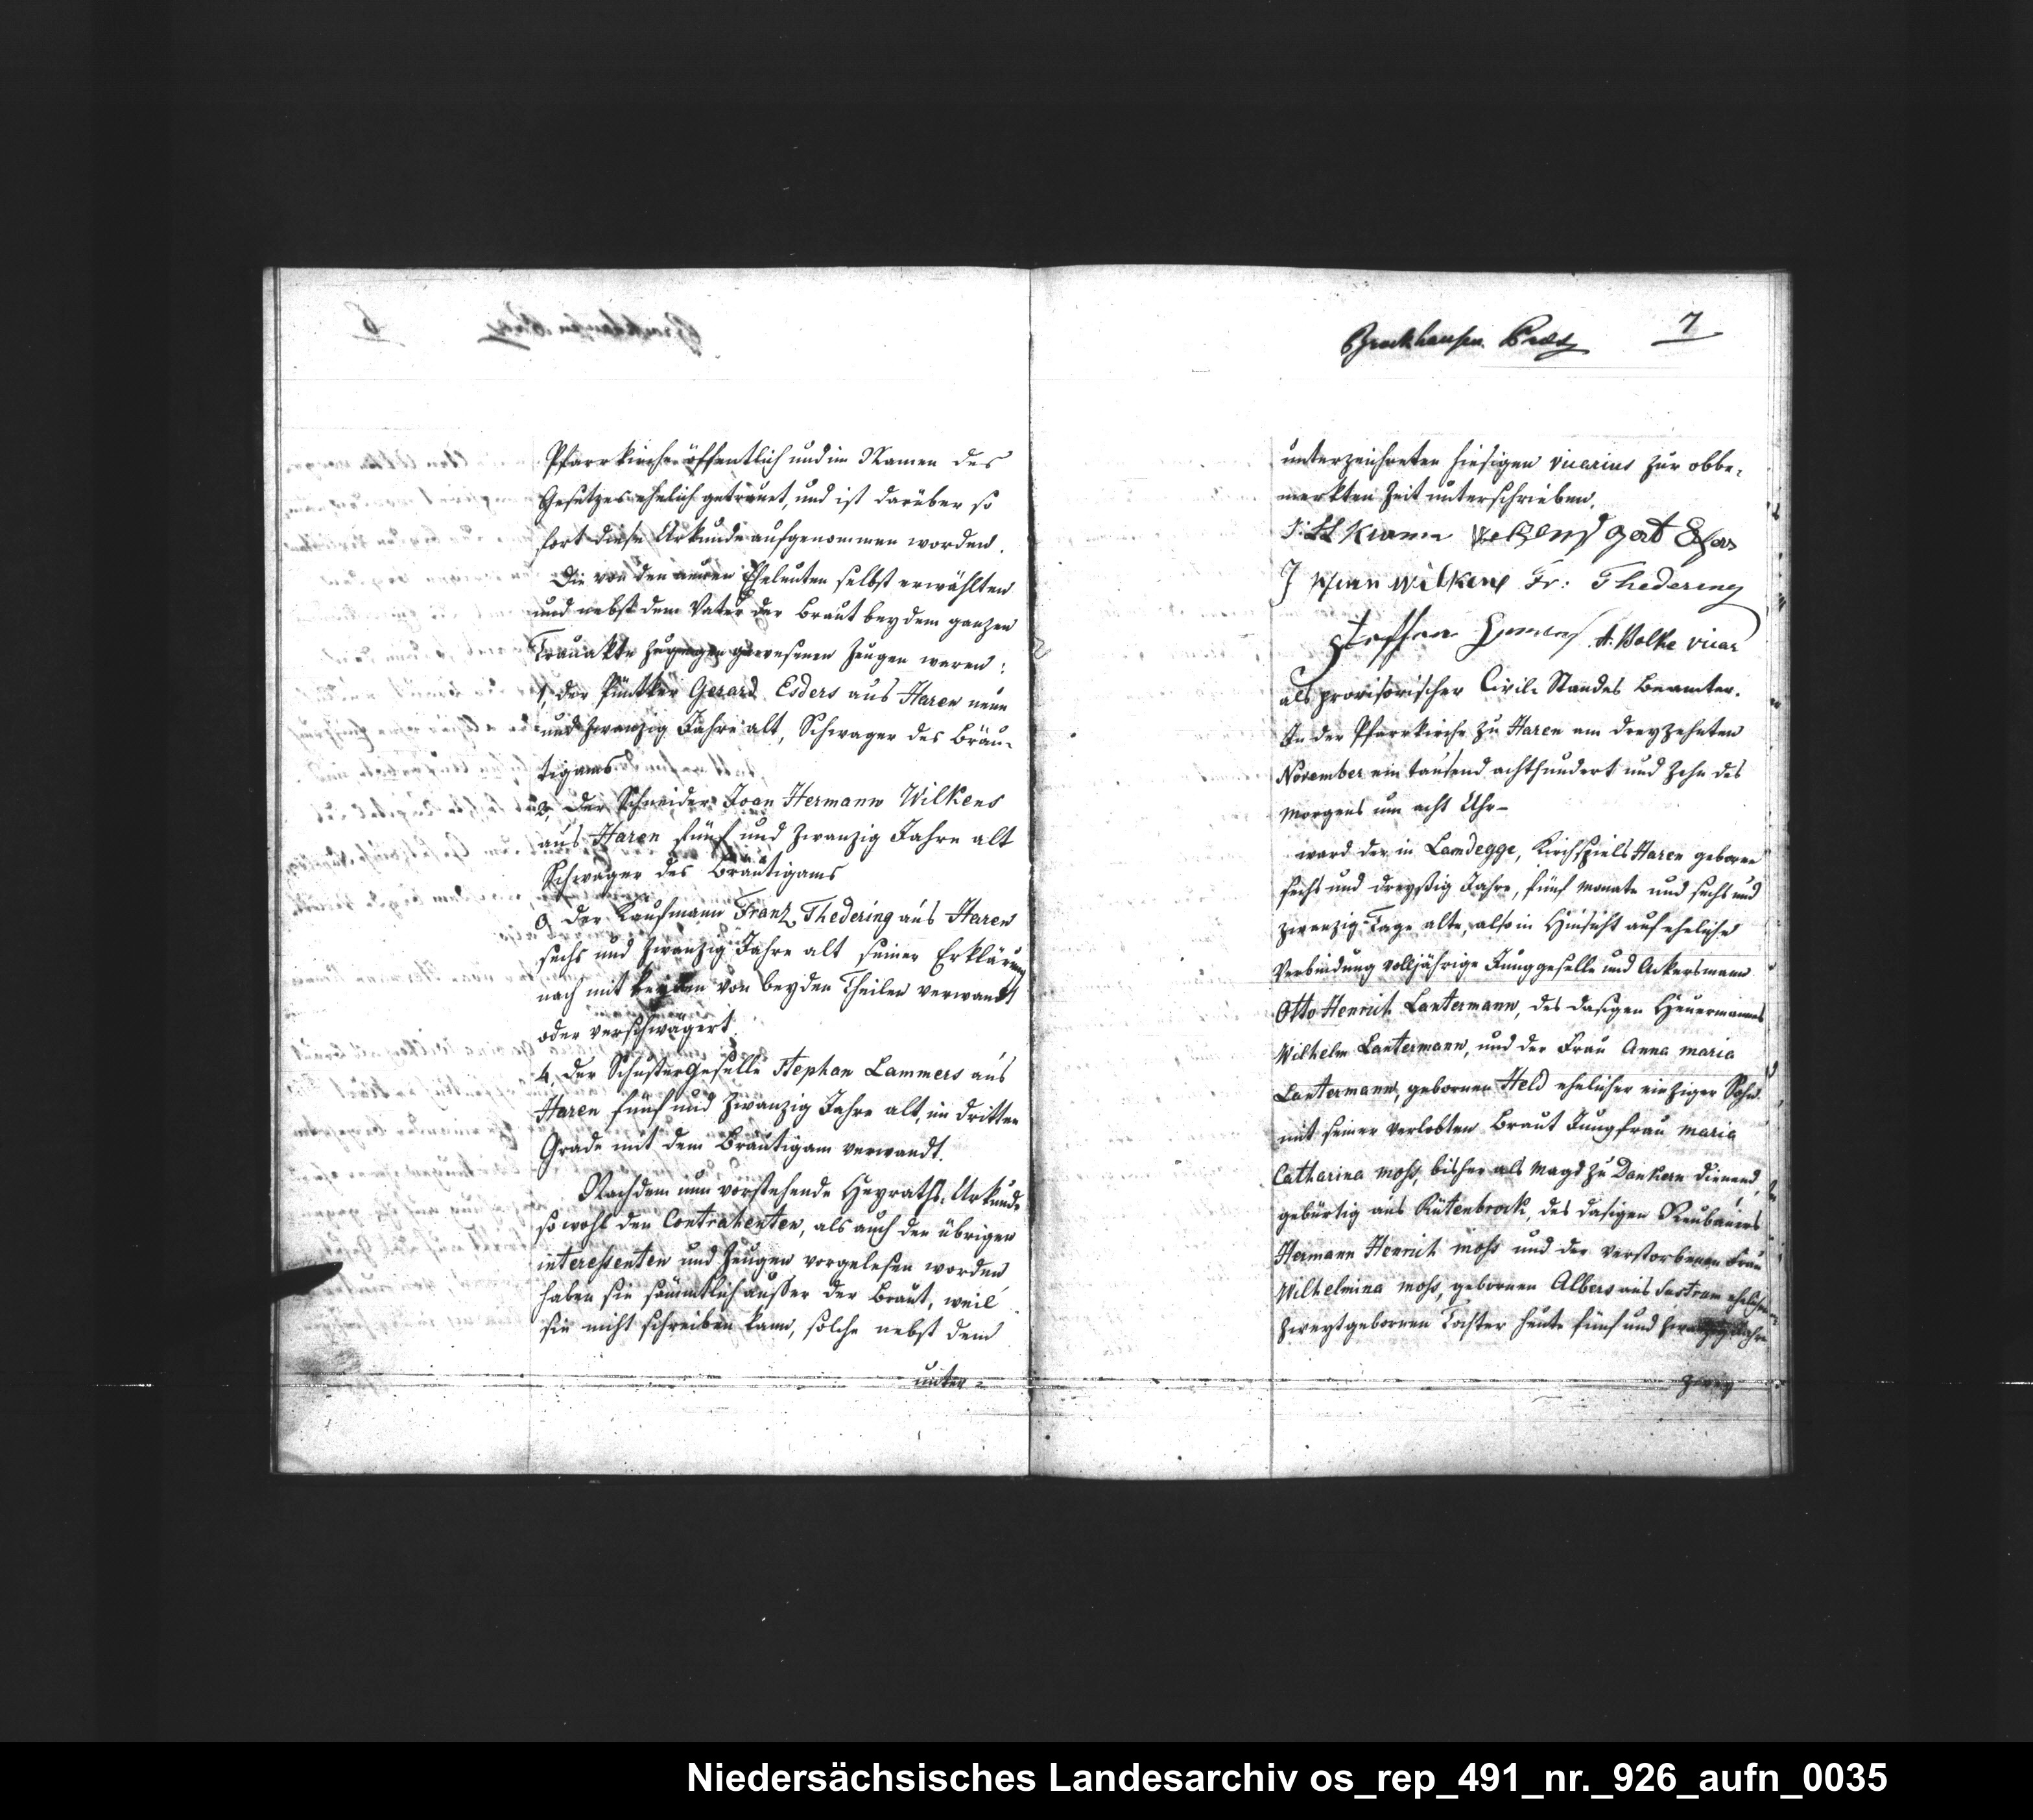 Pfarrkirche öffentlich und im Namen des
Gesetzes ehelich getrauet, und ist darüber so
fort diese Urkunde aufgenommen worden.
Die von den neuen Eheleuten selbst erwählten
und nebst dem Vater der Braut bey dem ganzen
Trauakte zugegen gewesenen Zeugen waren:
1, der Püntker Gerard Esders aus Haren neun
und zwanzig Jahre alt, Schwager des Bräu-
tigams
2, Der Schneider Joan Hermann Wilkens
aus Haren fünf und zwanzig Jahre alt
Schwager des Bräutigams
3 Der Kaufmann Franz Thedering aus Haren
sechs und zwanzig Jahre alt seiner Erklärung
nach mit keinem von beyden Theilen verwandt
oder verschwägert.
4, Der Schustergeselle Stephan Lammers aus
Haren fünf und zwanzig Jahre alt, im dritten
Grade mit dem Bräutigam verwandt.
Nachdem nun vorstehende Heyraths-Urkunde
so wohl den Contrahenten, als auch den übrigen
interessenten und Zeugen vorgelesen worden
haben sie sämmtlich ausser der Braut, weil
sie nicht schreiben kann, solche nebst dem
unter-
Brockhausen Praes
7
unterzeichneten hiesigen vicarius zur obbe-
merkten Zeit unterschrieben.
J. H
J Wilkens Fr: Thedering
Steffen A. Wolke vicar
als provisorischer Civil-Standes Beamter.
In der Pfarrkirche zu Haren am dreyzehnten
November ein tausend achthundert und zehn des
Morgens um acht Uhr-
ward der in Landegge, Kirchspiels Haren geborne
sechs und dreyßig Jahre, fünf Monate und sechs und
zwanzig Tage alte, also in Hinsicht auf eheliche
Verbindung volljährige Junggeselle und Ackersmann
Otto Henrich Lantermann, des dasigen Heuermannes
Wilhelm Lantermann, und der Frau Anna Maria
Lantermann, gebornen Held ehelicher einziger Sohn
mit seiner verlobten Braut Jungfrau Maria
Catharina Moss, bisher als Magd zu Dankern dienend,
gebürtig aus Rütenbrock, des dasigen Neubauers
Hermann Henrich Moss und der verstorbenen Frau
Wilhelmina Moss, gebornen Albers aus Sustrum ehelichen
zweytgebornen Tochter heute fünf und zwanzig Jahre
zwey
Niedersächsisches Landesarchiv os_rep_491_nr._926_aufn_0035